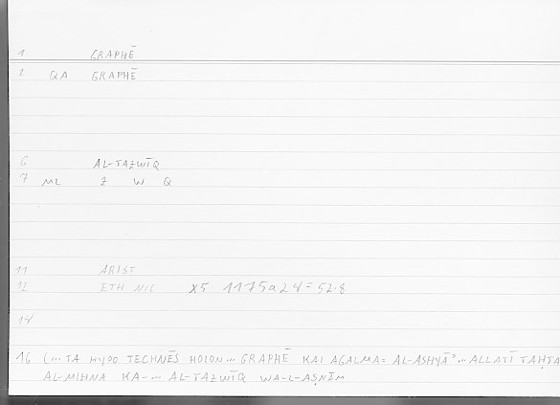 1 GRAPHĒ
2 QA GRAPHĒ
6 AL-TAZWĪQ
7 ML Z W Q
11 ARIST
12 ETH NIC X5 1175a24 = 52.8
14
16 (... TA HYPO TECHNĒS HOION... GRAPHĒ KAI AGALMA = AL-ASHYĀʾ... ALLATĪ TAḤTA
AL-MIHNA KA-... AL-TAZWĪQ WA-L-AṢNĪM